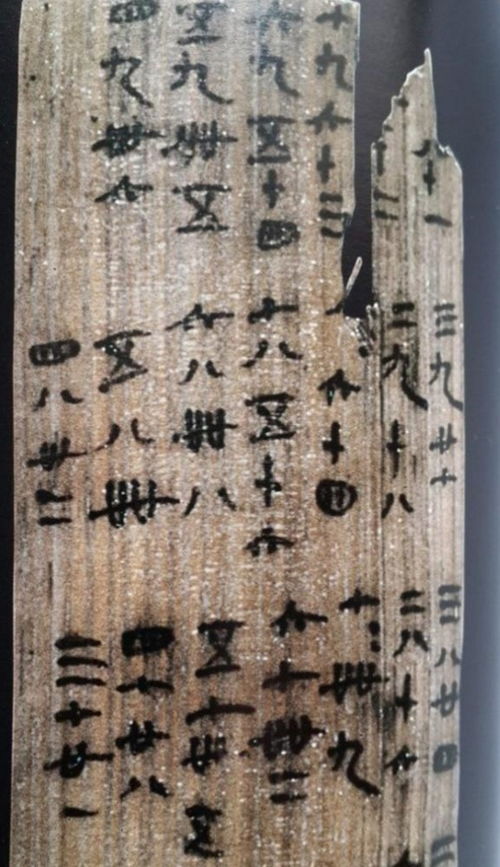 八十一
十二
七九六十三
六九五十四
五九卌五
四九卅六
三九廿七
二九十八
六十四
七八五十六
六八卌八
五八卌
四八卅二
三八廿四
二八十六
七七卌九
六七卌二
五七卅五
四七廿八
三七廿一